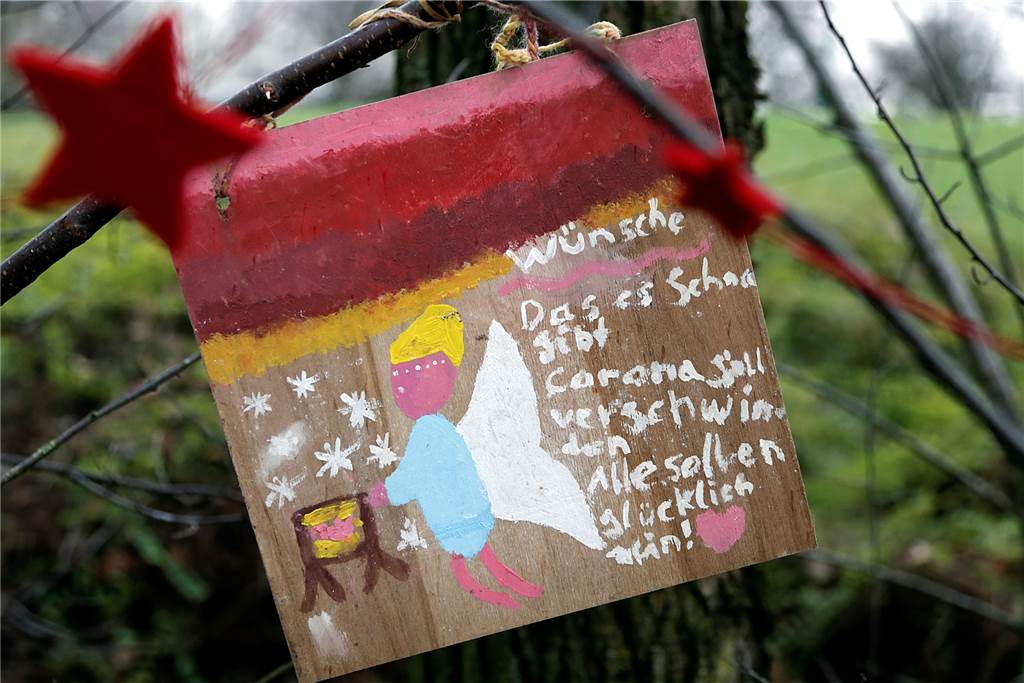 Wünsche
Das es Schnee
gibt
Corona soll
verschwin-
den
Alle sollen
glücklich
sein!